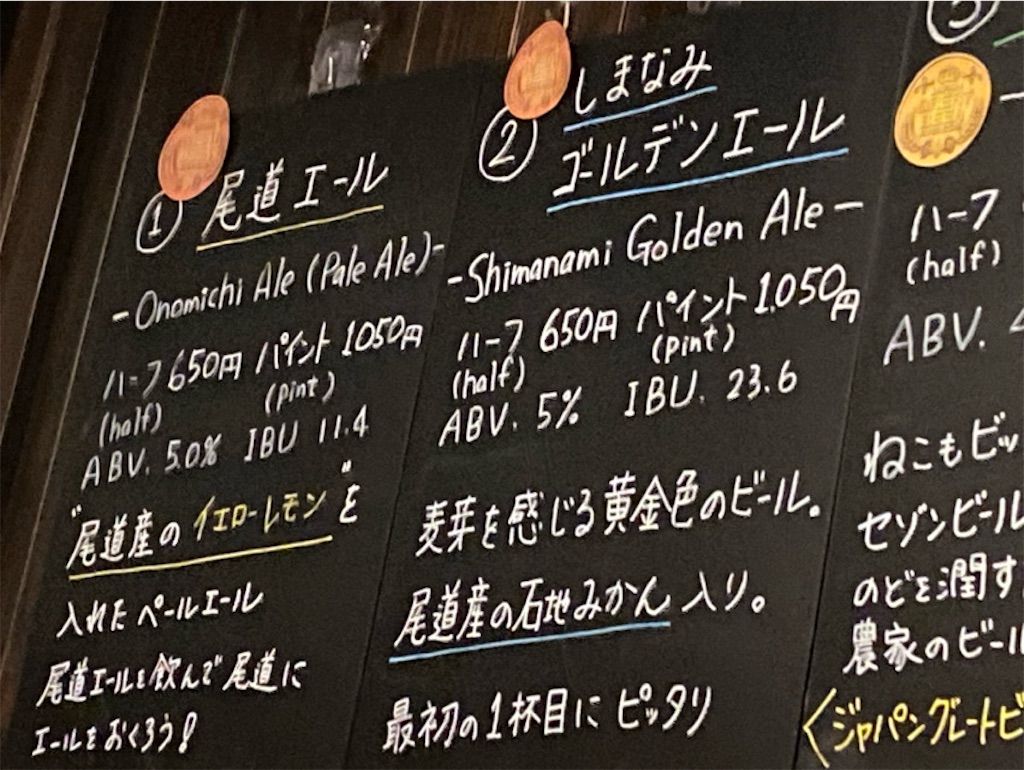 ① 尾道エール
- Onomichi Ale (Pale Ale) -
ハーフ 650円 パイント 1050円
(half) (pint)
ABV. 5.0% IBU 11.4
"尾道産のイエローレモン"を
入れたペールエール
尾道エールを飲んで尾道に
エールをおくろう!
② しまなみ
ゴールデンエール
- Shimanami Golden Ale -
ハーフ 650円 パイント 1,050円
(half) (pint)
ABV. 5% IBU. 23.6
麦芽を感じる黄金色のビール。
尾道産の石地みかん入り。
最初の1杯目にピッタリ
③
ハーフ
(half)
ABV.
ねこもビッ
セゾンビール
のどを潤す
農家のビール
〈ジャパングレートビ